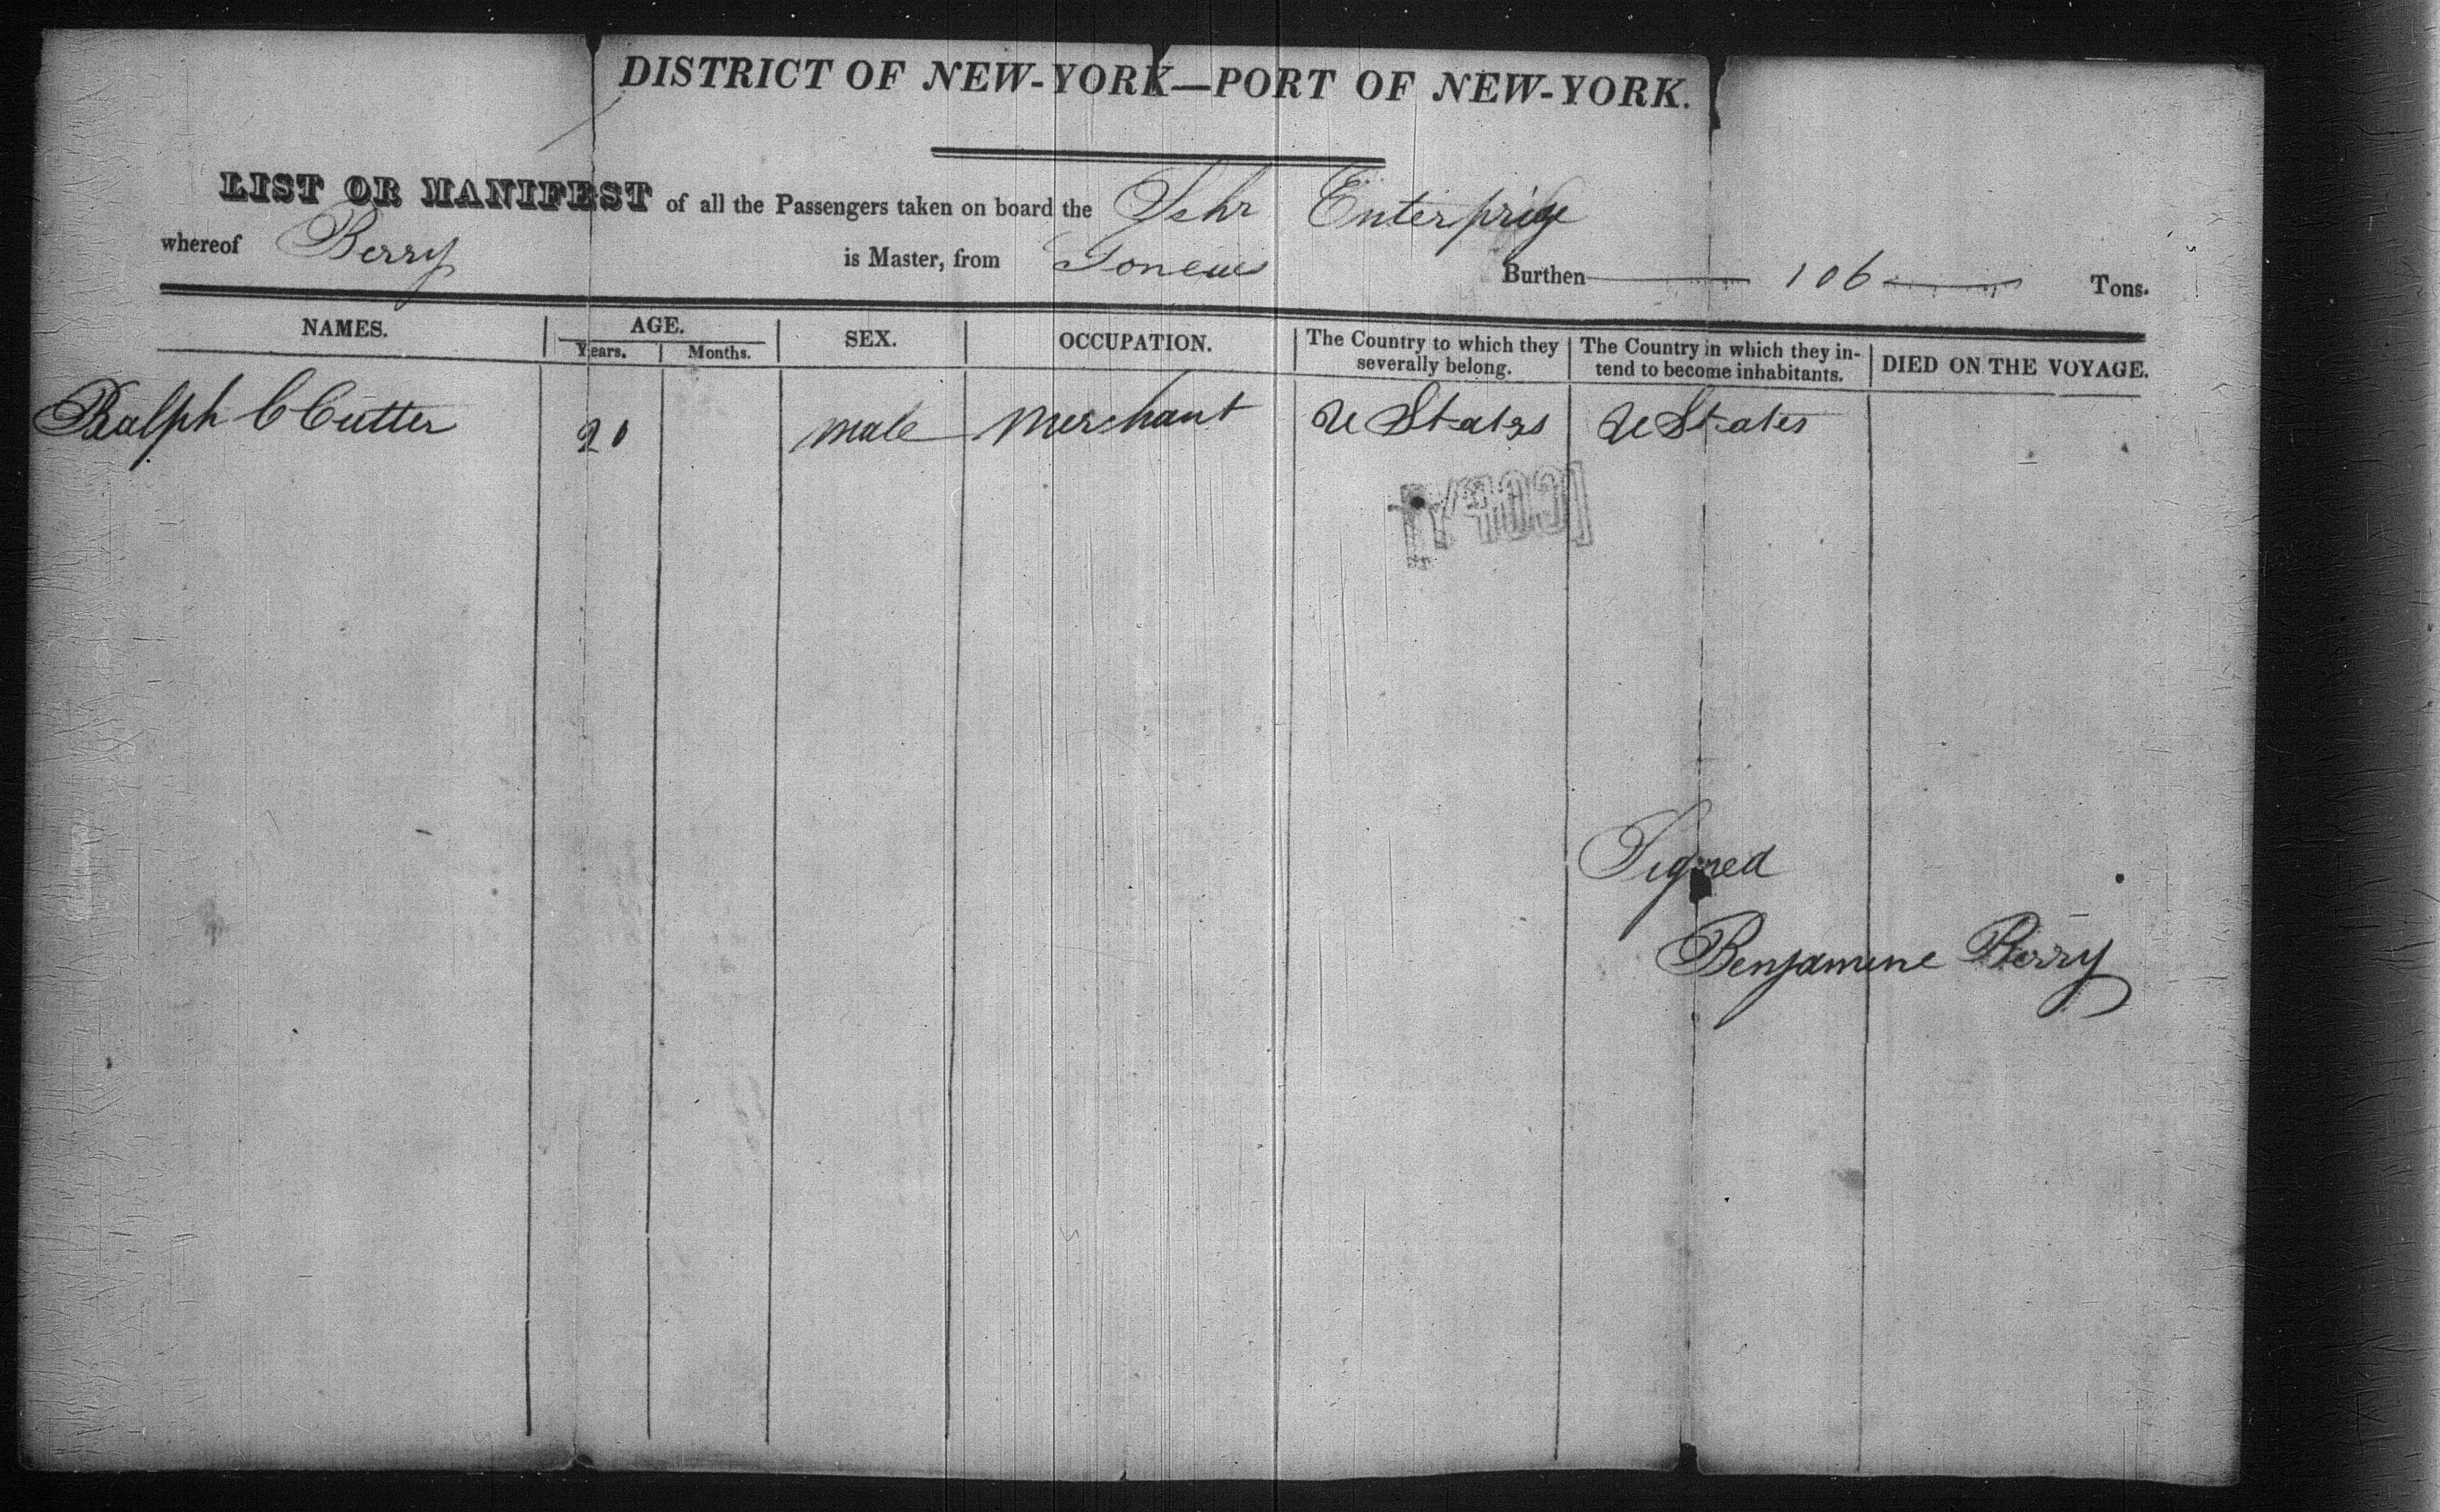 DISTRICT OF NEW-YORK—PORT OF NEW-YORK.
LIST OR MANIFEST of all the Passengers taken on board the Schr Enterprise
whereof Berry is Master, from Burthen 106 Tons.
NAMES. AGE. SEX. OCCUPATION. The Country to which they severally belong. The Country in which they in-tend to become inhabitants. DIED ON THE VOYAGE.
Years. Months.
Ralph C Cutter 20 male Merchant U States U States
[COPY]
Signed
Benjamine Berry